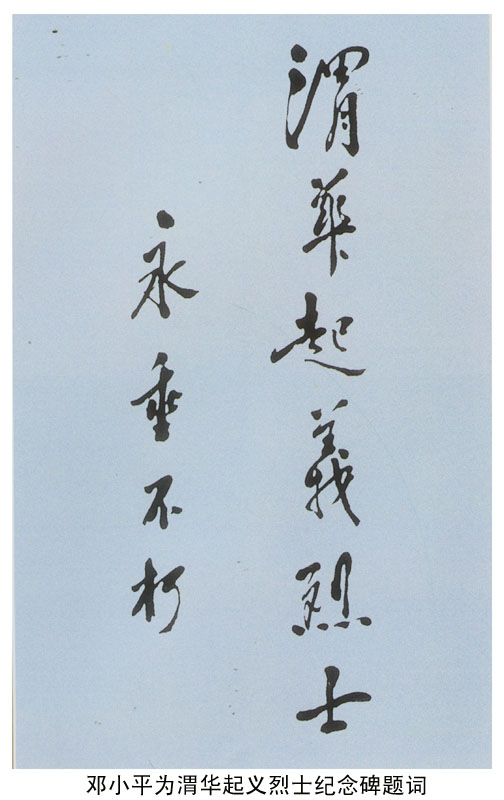 渭華起義烈士
永垂不朽
邓小平为渭华起义烈士纪念碑题词